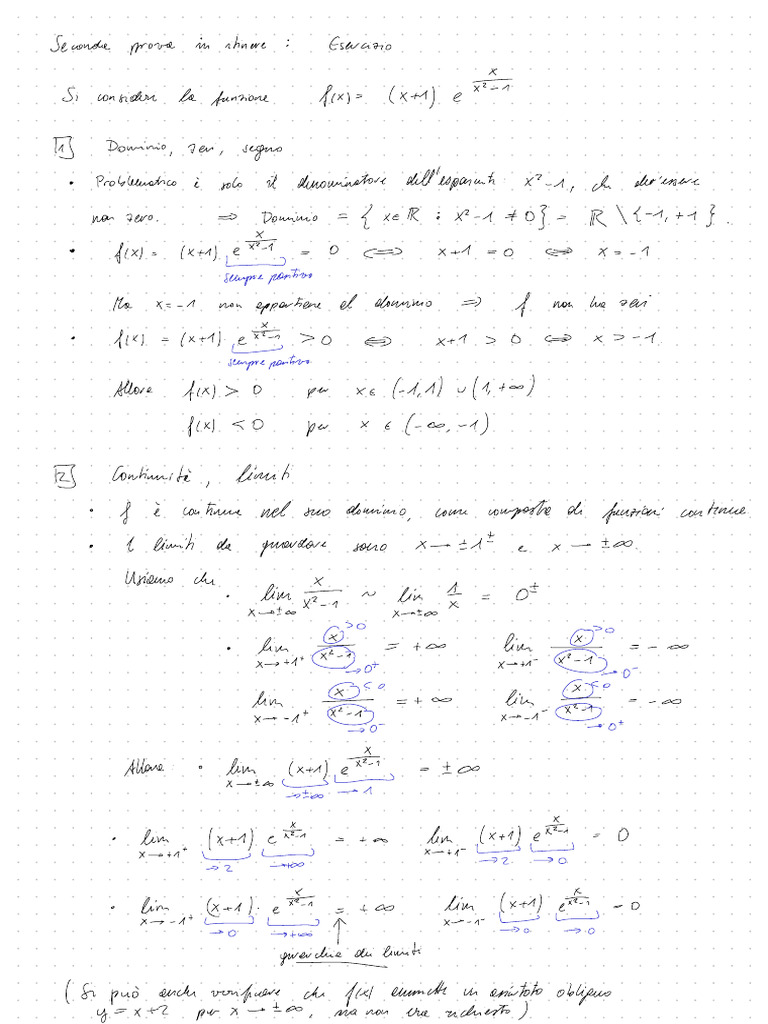 Seconda prova in itinere : Esercizio
Si consideri la funzione f(x) = (x+1) e^{x/(x²-1)}
[1] Dominio, zeri, segno
• Problematico è solo il denominatore dell'esponente x²-1, che dev'essere
non zero. ⇒ Dominio = { x∈ℝ : x²-1 ≠ 0 } = ℝ \ {-1, +1}.
• f(x) = (x+1) e^{x/(x²-1)} = 0 ⟺ x+1 = 0 ⟺ x = -1
sempre positivo
Ma x=-1 non appartiene al dominio ⇒ f non ha zeri
• f(x) = (x+1) e^{x/(x²-1)} > 0 ⟺ x+1 > 0 ⟺ x > -1.
sempre positivo
Allora f(x) > 0 per x ∈ (-1,1) ∪ (1,+∞)
f(x) < 0 per x ∈ (-∞,-1)
[2] Continuità, limiti
• f è continua nel suo dominio, come composta di funzioni continue
• I limiti da guardare sono x → ±1^± e x → ±∞.
Usiamo che • lim_{x→±∞} x/(x²-1) ~ lim_{x→±∞} 1/x = 0^±
• lim_{x→+1⁺} x/(x²-1) = +∞ lim_{x→+1⁻} x/(x²-1) = -∞
>0 →0⁺ >0 →0⁻
lim_{x→-1⁺} x/(x²-1) = +∞ lim_{x→-1⁻} x/(x²-1) = -∞
<0 →0⁻ <0 →0⁺
Allora • lim_{x→±∞} (x+1) e^{x/(x²-1)} = ±∞
→±∞ →1
• lim_{x→+1⁺} (x+1) e^{x/(x²-1)} = +∞ lim_{x→+1⁻} (x+1) e^{x/(x²-1)} = 0
→2 →+∞ →2 →0
• lim_{x→-1⁺} (x+1) · e^{x/(x²-1)} = +∞ lim_{x→-1⁻} (x+1) e^{x/(x²-1)} = 0
→0 →+∞ →0 →0
gerarchia dei limiti
(Si può anche verificare che f(x) ammette un asintoto obliquo
y = x+2 per x → ±∞, ma non era richiesto)